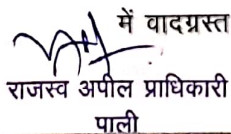 में वादग्रस्त
राजस्व अपील प्राधिकारी
पाली